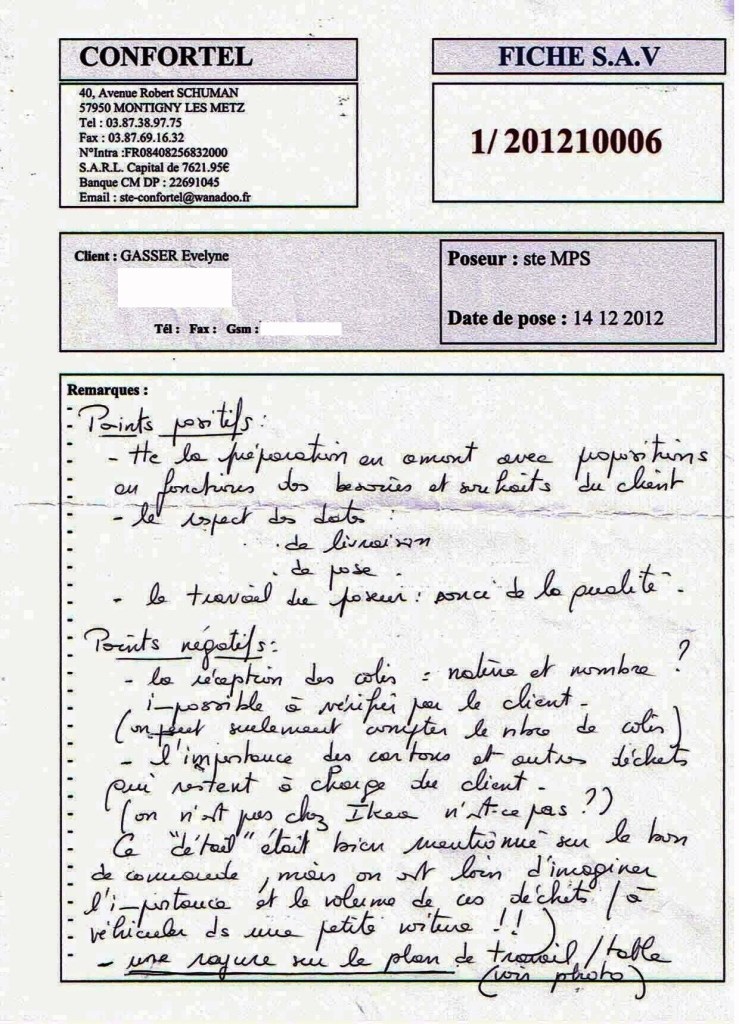 CONFORTEL
FICHE S.A.V
40, Avenue Robert SCHUMAN
57950 MONTIGNY LES METZ
Tel : 03.87.38.97.75
Fax : 03.87.69.16.32
N°Intra :FR08408256832000
S.A.R.L. Capital de 7621.95€
Banque CM DP : 22691045
Email : ste-confortel@wanadoo.fr
1/ 201210006
Client : GASSER Evelyne
Tél : Fax : Gsm :
Poseur : ste MPS
Date de pose : 14 12 2012
Remarques :
Points positifs :
- Tte la préparation en amont avec propositions
en fonctions des besoins et souhaits du client
- le respect des dates :
. de livraison
. de pose .
- le travail du poseur : souci de la qualité .
Points négatifs :
- la réception des colis : nature et nombre ?
impossible à vérifier par le client .
(on peut seulement compter le nbre de colis)
- l'importance des cartons et autres déchets
qui restent à charge du client .
(on n'est pas chez Ikea n'est-ce pas ?)
Ce "détail" était bien mentionné sur le bon
de commande , mais on est loin d'imaginer
l'importance et le volume de ces déchets / à
véhiculer ds une petite voiture !! )
- une rayure sur le plan de travail / table
(voir photo)